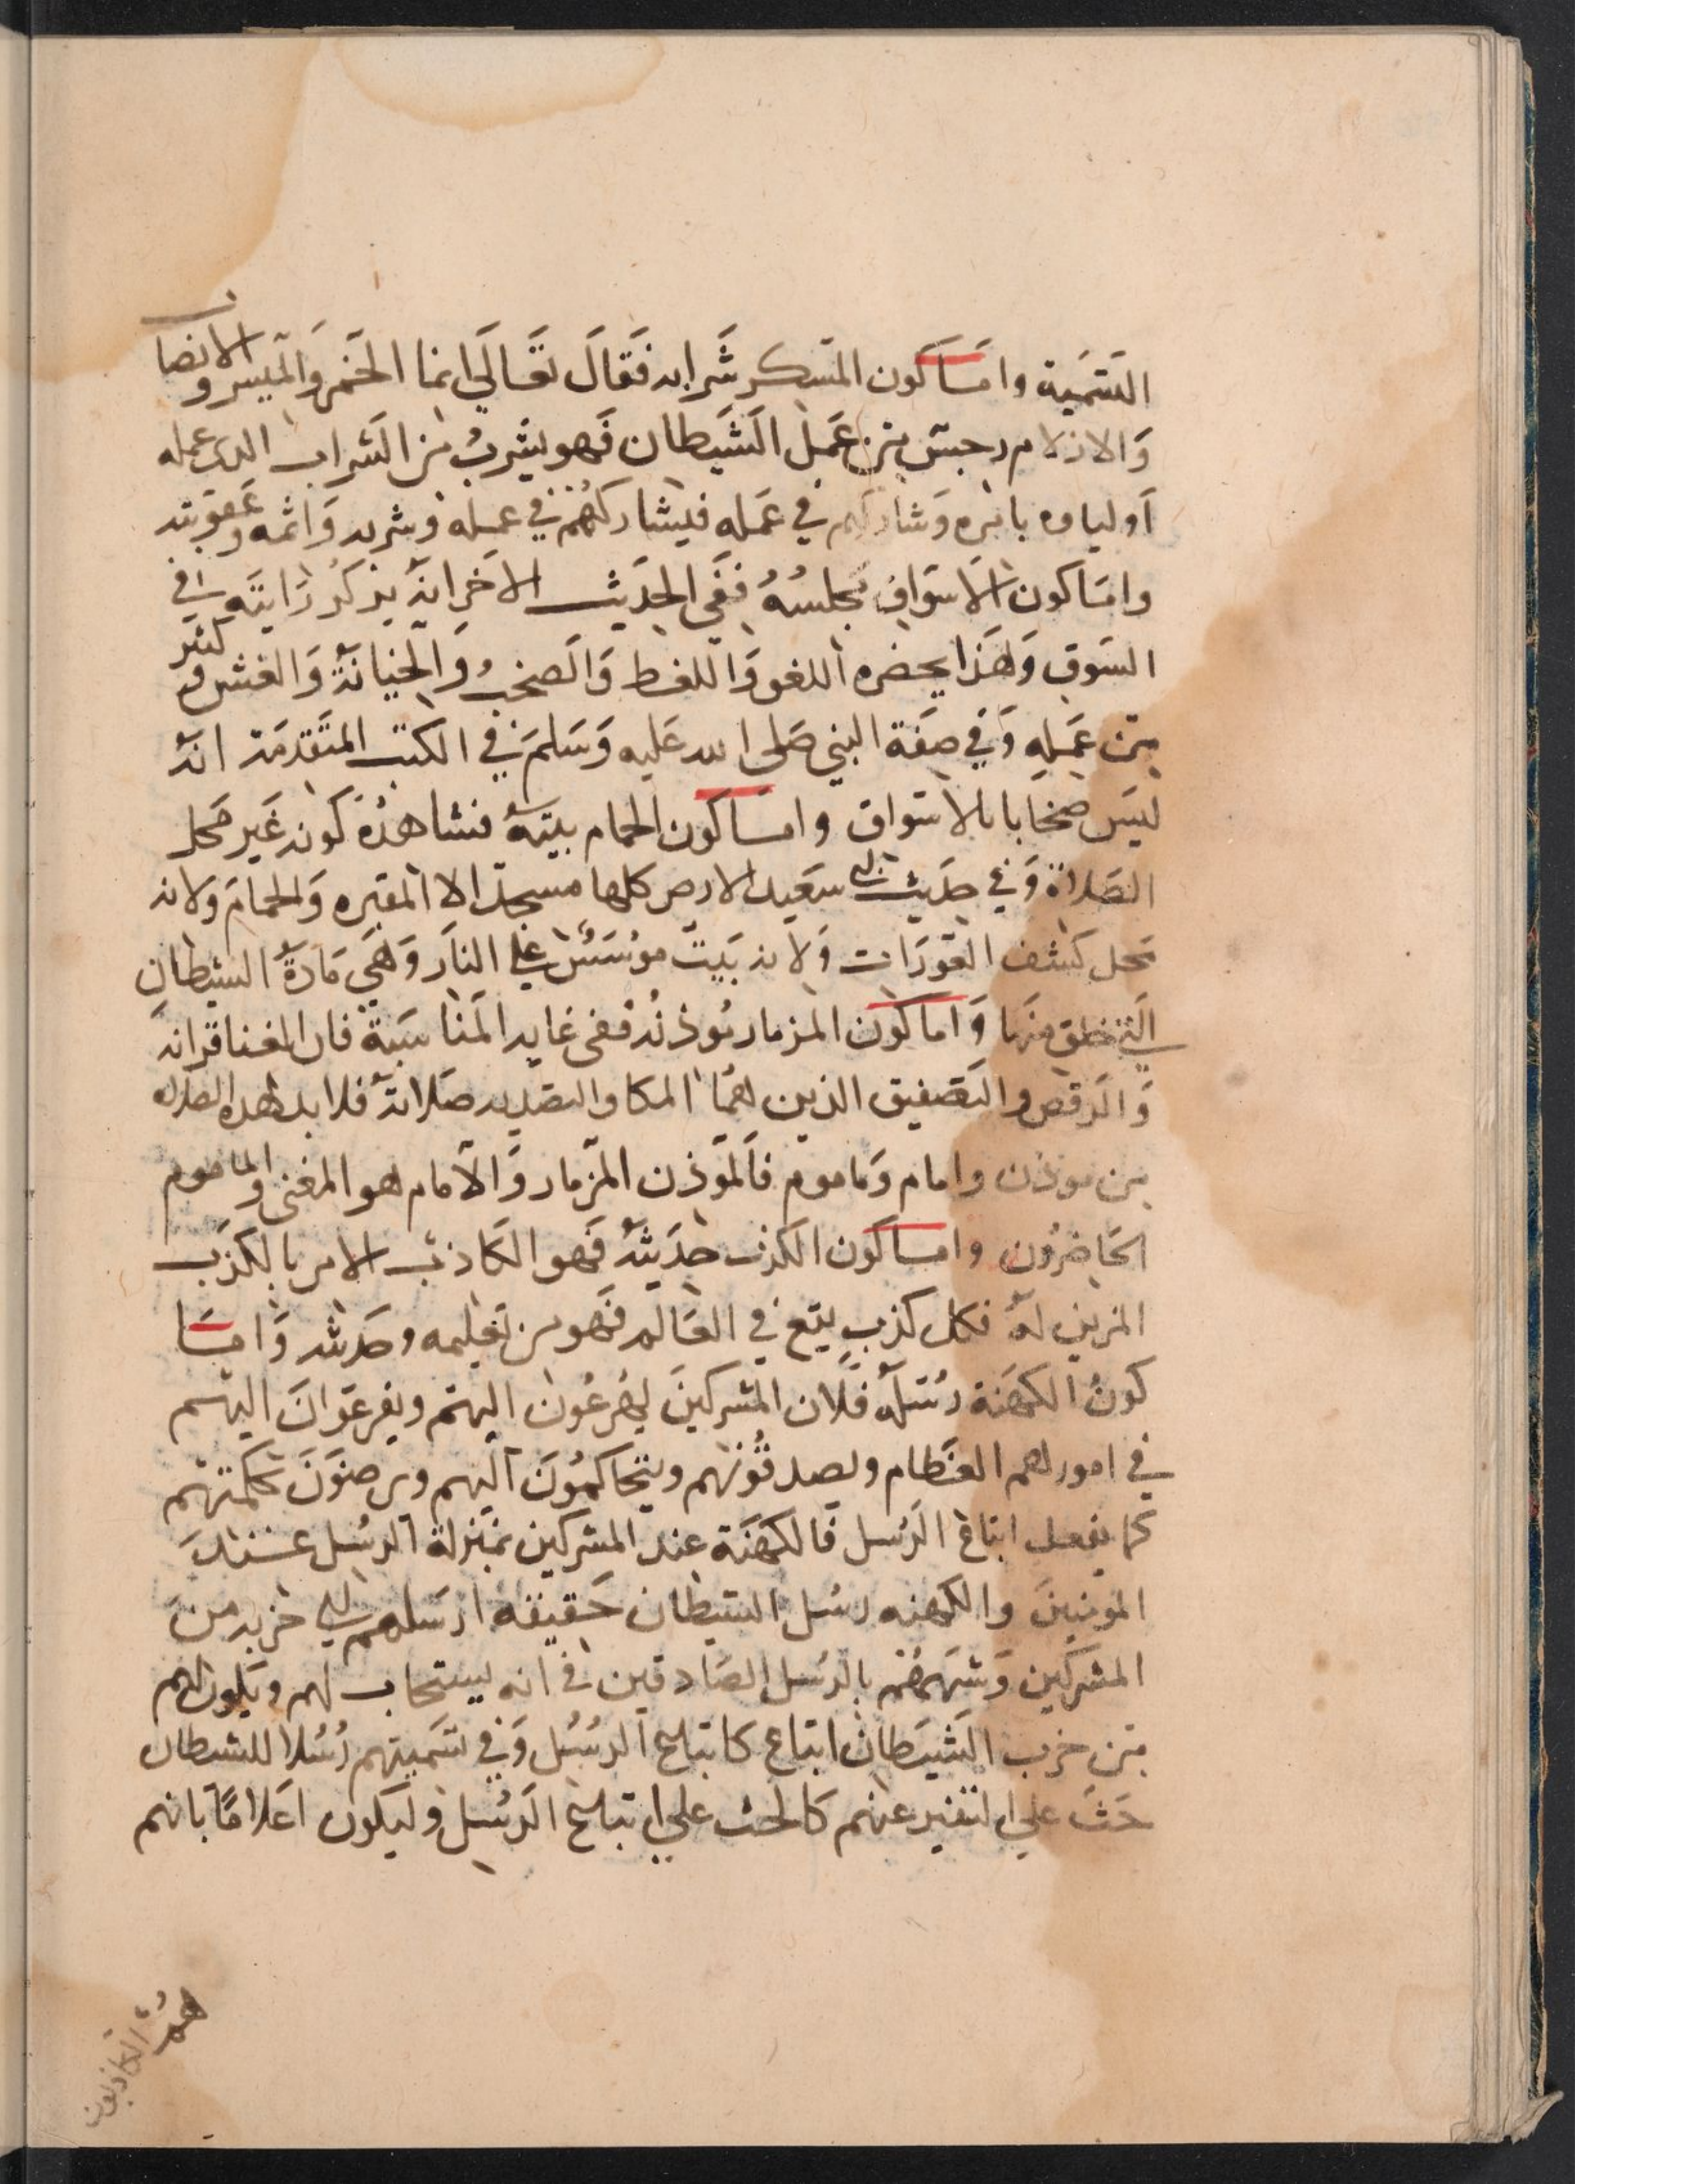 التسمية واما كون المسكر شرابه فقال تعالى انما الخمر والميسر والانصاب
والازلام رجس من عمل الشيطان فهو يشرب من الشراب الدى عمله
أولياوه بامره وشاركهم في عمله فيشاركهم في عمله وشربه واثمه وعقوبته
واما كون الاسواق مجلسه ففي الحديث الاخر انه يركز رايته في
السوق ولهذا يحضره اللغو واللغط والصخب والخيانة والغش وكثير
من عمله وفي صفة النبي صلى الله عليه وسلم في الكتب المتقدمة انه
ليس صخابا بالاسواق واما كون الحمام بيته فشاهده كونه غير محل
الصلاة وفي حديث ابى سعيد الارض كلها مسجد الا المقبره والحمام ولانه
محل كشف العورات ولانه بيت موسس على النار وهي مادة الشيطان
التي خلق منها واما كون المزمار موذنه ففى غايه المناسبة فان الغنا قرانه
والرقص والتصفيق الذين هما المكا والتصديه صلاته فلا بد لهذه الصلاه
من موذن وامام وماموم فالموذن المزمار والامام هو المغنى والماموم
الحاضرون واما كون الكذب حديثه فهو الكاذب الامر بالكذب
المزين له فكل كذب يقع في العالم فهو من تعليمه وحديثه واما
كون الكهنة رسله فلان المشركين يهرعون اليهم ويفزعون اليهم
في امورهم العظام ويصدقونهم ويتحاكمون اليهم ويرضون بحكمتهم
كما يفعل اتباع الرسل فالكهنة عند المشركين بمنزلة الرسل عند
المومنين والكهنه رسل الشيطان حقيقه ارسلهم الى حزبه من
المشركين وشبههم بالرسل الصادقين في انه يستجاب لهم ويكون لهم
من حزب الشيطان اتباع كاتباع الرسل وفي تسميتهم رسلا للشيطان
حث على التنفير عنهم كالحث على اتباع الرسل وليكون اعلاما بانهم
هم الكاذبون